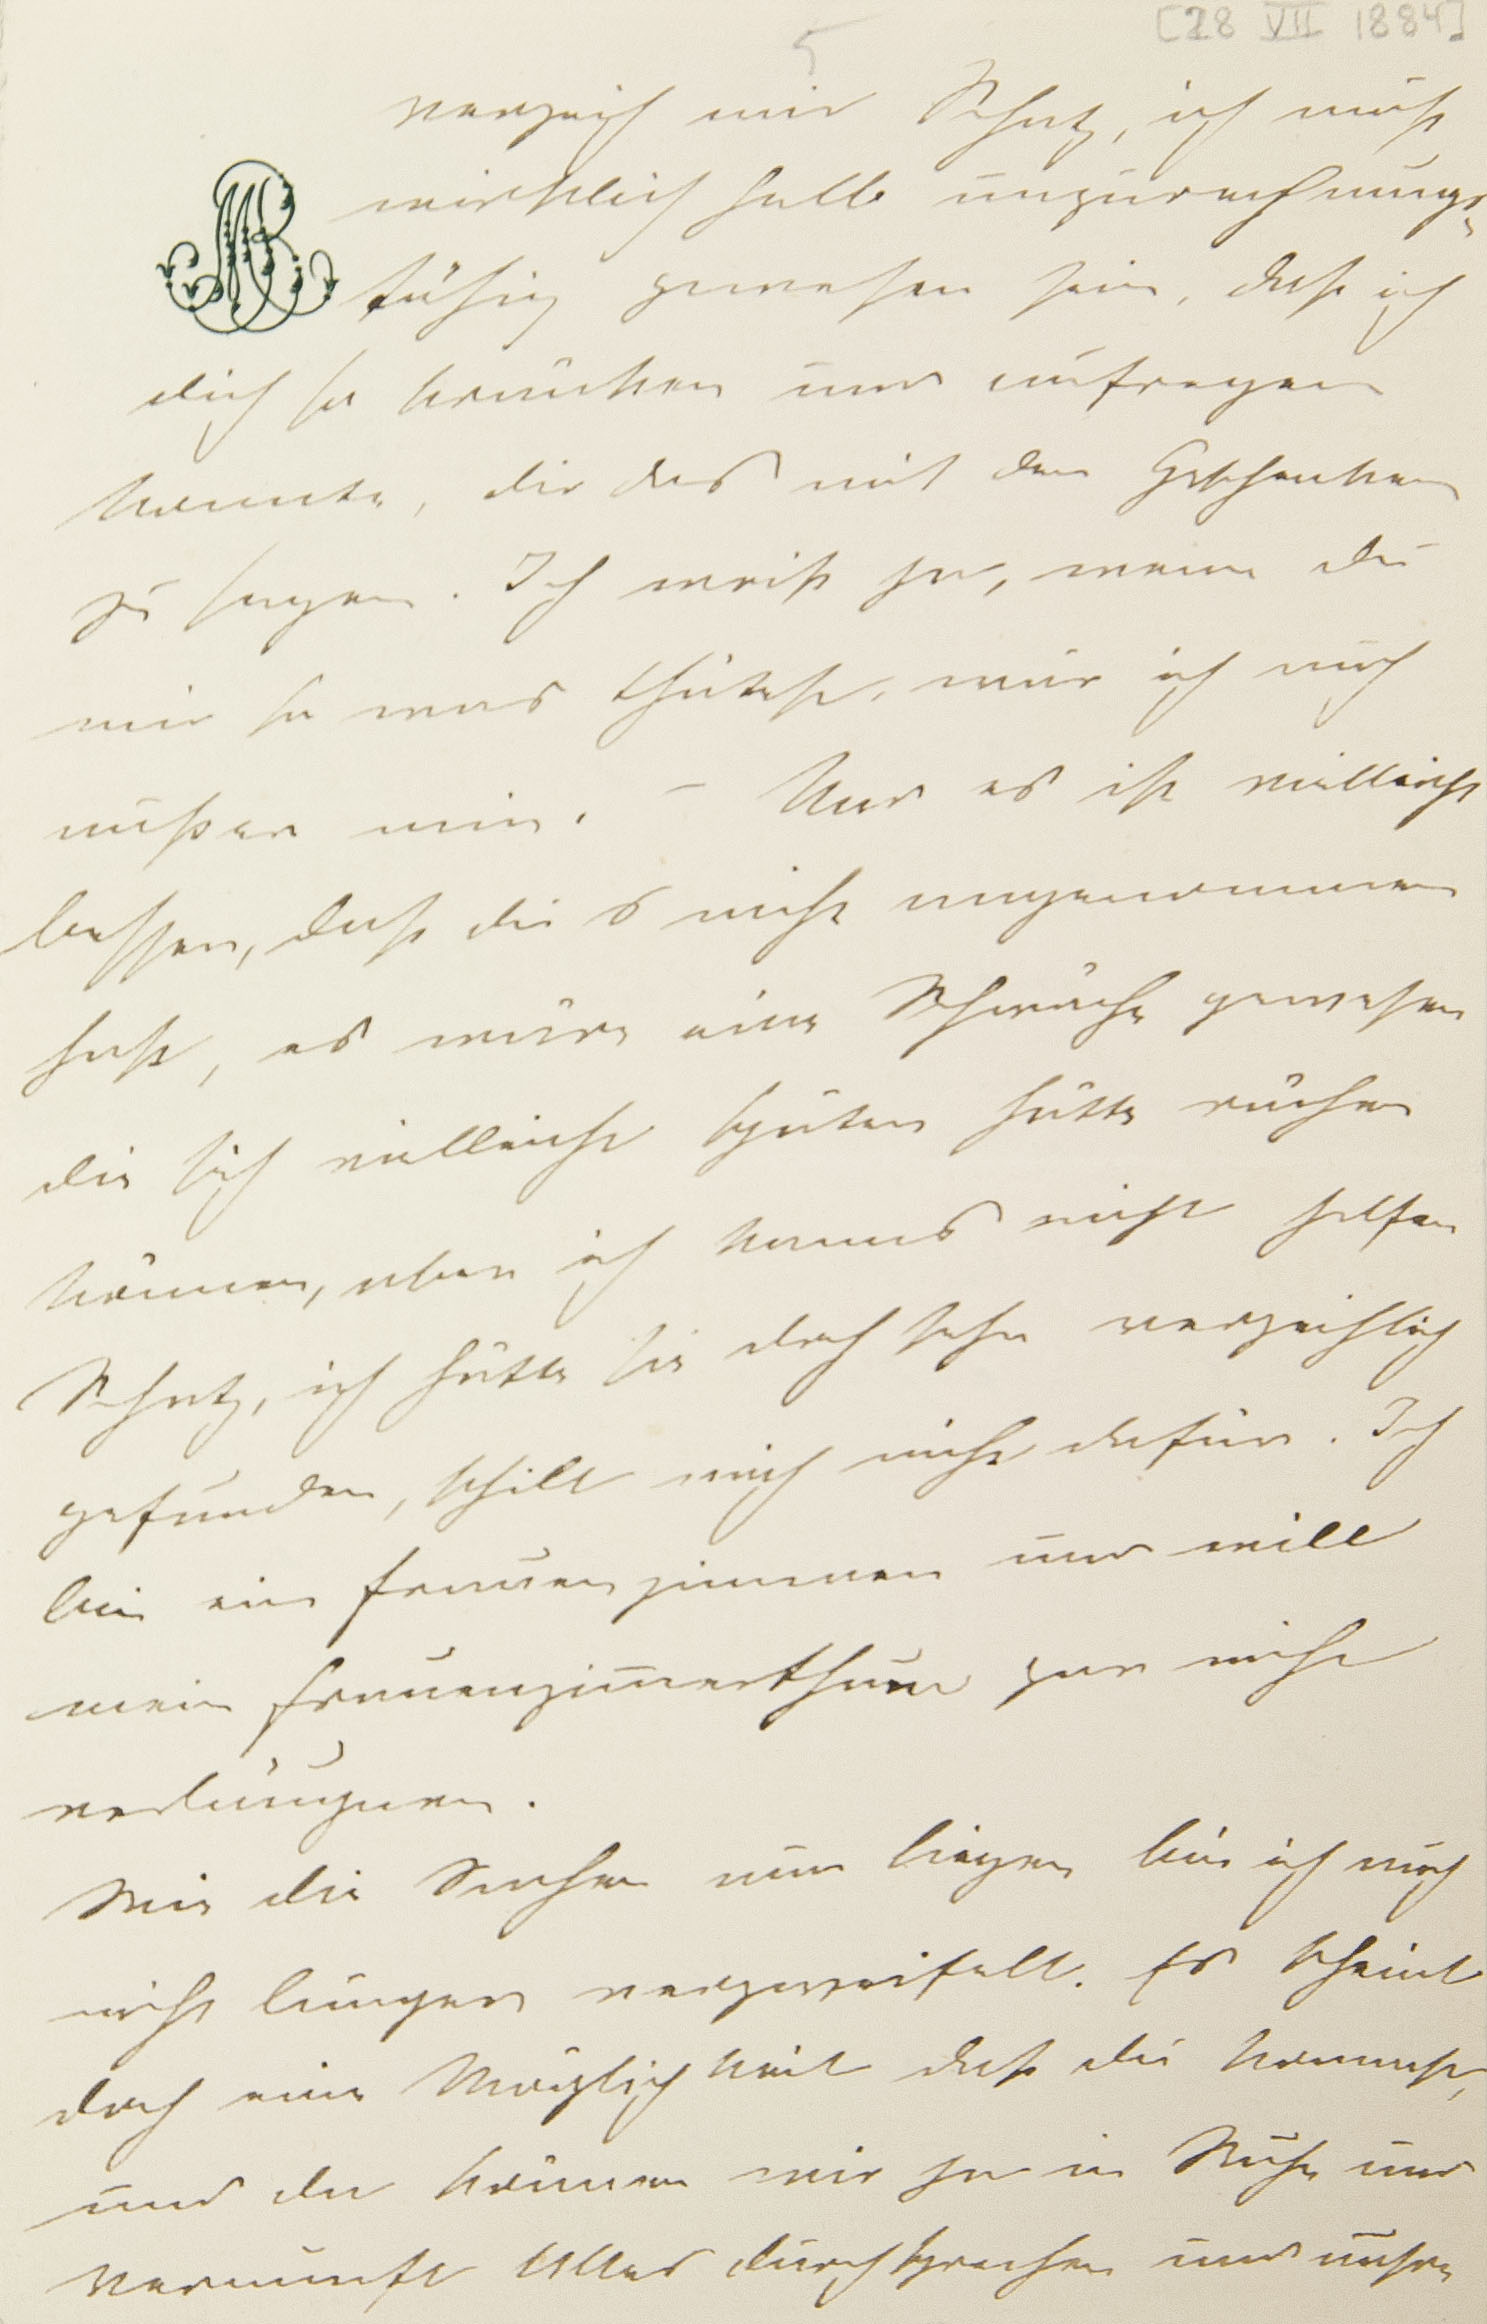 [28 VII 1884]
5
MB
verzeih mir Schatz, ich muß
wirklich halb unzurechnungs-
fähig gewesen sein, daß ich
dich so kränken und aufregen
konnte, dir das mit den Geschenken
zu sagen. Ich weiß ja, wenn du
mir so was thätest, wär ich auch
außer mir. – Und es ist vielleicht
besser, daß du 's nicht angenommen
hast, es wäre eine Schwäche gewesen
die sich vielleicht später hätte rächen
können, aber ich kanns nicht helfen
Schatz, ich hätte sie doch sehr verzeihlich
gefunden, schilt mich nicht dafür. Ich
bin ein Frauenzimmer und will
mein Frauenzimerthum gar nicht
verläugnen.
Wie die Sachen nun liegen bin ich auch
nicht länger verzweifelt. Es scheint
doch eine Möglichkeit daß du kommst,
und da können wir ja in Ruhe und
Vernunft Alles durchsprechen und unsre